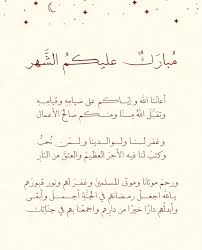 مُبارَكٌ عليكمُ الشَّهر
أعاننا الله وإياكم على صيامهِ وقيامِهِ
وتقبل اللهُ مِنّا ومنكم صالحَ الأعمال
وغفر لـنـا ولـوالديـنا ولـمـن نُحبُّ
وكتبَ لنا فيه الأجرَ العظيمَ والعتقَ من النارِ
ورحمَ موتانا وموتى المسلمين وغفر لهم ونور قبورَهم
يا اللهُ اجعل رمضانَهم في الجنَّةِ أجملُ وأبقى
وأبدلهم دارًا خيرًا من دارِهم واجمعنا بهم في جنَّاتك